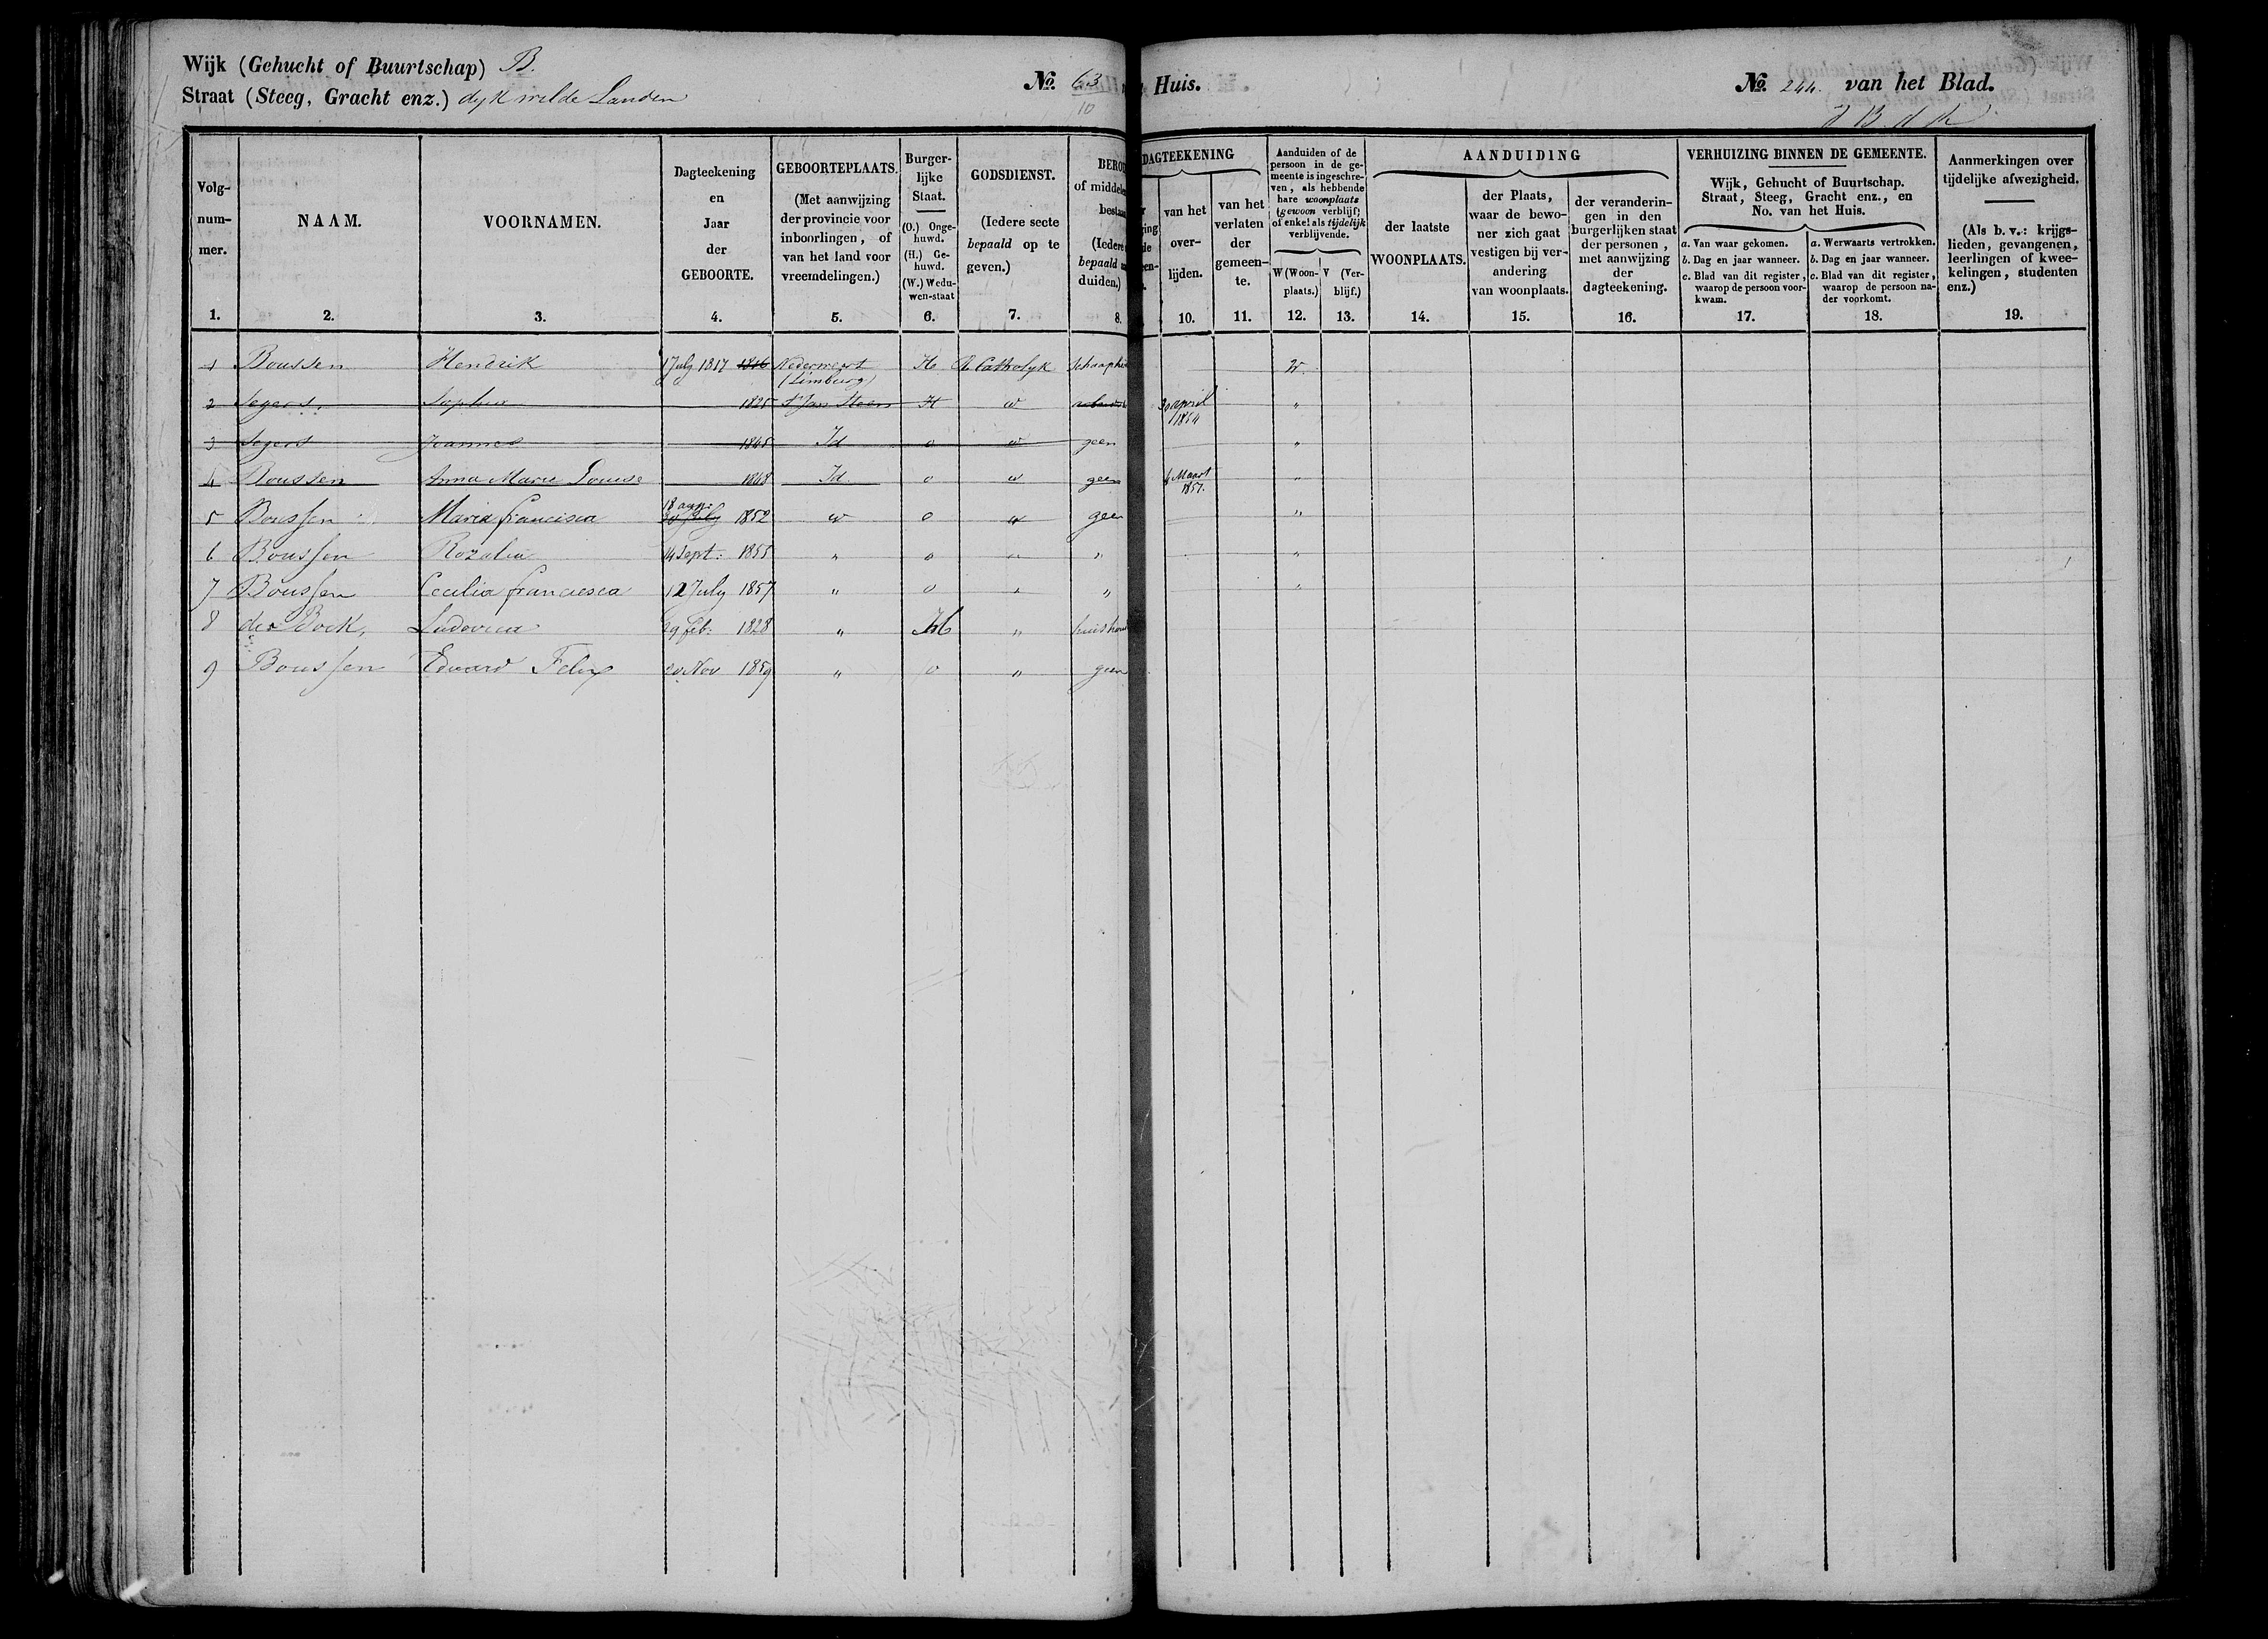 Wijk (Gehucht of Buurtschap) B.
Straat (Steeg, Gracht enz.) dyk wilde Landen
No. 63 Huis.
10
No. 244. van het Blad.
Volg-
num-
mer.
1.
NAAM.
2.
VOORNAMEN.
3.
Dagteekening
en
Jaar
der
GEBOORTE.
4.
GEBOORTEPLAATS.
(Met aanwijzing
der provincie voor
inboorlingen, of
van het land voor
vreemdelingen.)
5.
Burger-
lijke
Staat.
(O.) Onge-
huwd.
(H.) Ge-
huwd.
(W.) Wedu-
wen-staat
6.
GODSDIENST.
(Iedere secte
bepaald op te
geven.)
7.
BERO
of middele
besta
(Iedere
bepaald
duiden.)
8.
DAGTEEKENING
van het
over-
lijden.
10.
van het
verlaten
der
gemeen-
te.
11.
Aanduiden of de
persoon in de ge-
meente is ingeschre-
ven, als hebbende
hare woonplaats
(gewoon verblijf;
of enkel als tijdelijk
verblijvende.
W (Woon-
plaats.)
12.
V (Ver-
blijf.)
13.
AANDUIDING
der laatste
WOONPLAATS.
14.
der Plaats,
waar de bewo-
ner zich gaat
vestigen bij ver-
andering
van woonplaats.
15.
der veranderin-
gen in den
burgerlijken staat
der personen,
met aanwijzing
der
dagteekening.
16.
VERHUIZING BINNEN DE GEMEENTE.
Wijk, Gehucht of Buurtschap.
Straat, Steeg, Gracht enz., en
No. van het Huis.
a. Van waar gekomen.
b. Dag en jaar wanneer.
c. Blad van dit register,
waarop de persoon voor-
kwam.
17.
a. Werwaarts vertrokken.
b. Dag en jaar wanneer.
c. Blad van dit register,
waarop de persoon na-
der voorkomt.
18.
Aanmerkingen over
tijdelijke afwezigheid.
(Als b. v.: krijgs-
lieden, gevangenen,
leerlingen of kwee-
kelingen, studenten
enz.)
19.
1 Boussen Hendrik 1 July 1817 1816 Nederweert (Limburg) H R Catholyk schaaph W.
2 Segers, Sophia 1825 St Jan Steen H " 30 april 1854 "
3 Segers Joannes 1845 Id o " geen "
4 Boussen Anna Marie Louise 1848 Id o " geen Maart 1857. "
5 Boussen Maria francisca 18 aug: 1852 " o " geen "
6 Boussen Rozalia 14 Sept: 1855 " o " " "
7 Boussen Cecilia francisca 12 July 1857 " o " " "
8 de Bock, Ludovica 29 feb: 1828 " H " huishou
9 Boussen Eduard Felix 20 Nov 1859 " o " geen